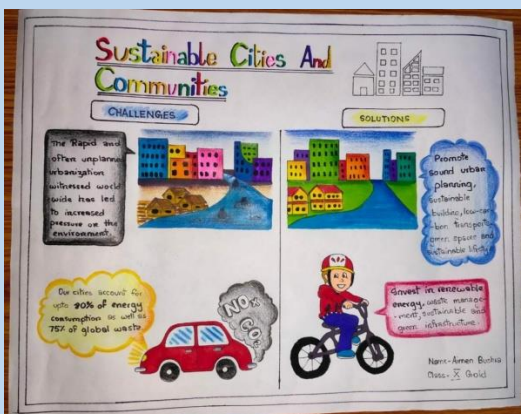 Sustainable Cities And
Communities
CHALLENGES
SOLUTIONS
The Rapid and
often unplanned
urbanization
witnessed world
wide has led
to increased
pressure on the
environment.
Promote
sound urban
planning,
sustainable
building, low-car
-bon transport,
green spaces and
sustainable lifestyle
Our cities account for
upto 80% of energy
consumption as well as
75% of global waste
NOx
CO2
Invest in renewable
energy, waste manage-
-ment, sustainable and
green infrastructure.
Name- Bushra
Class- X